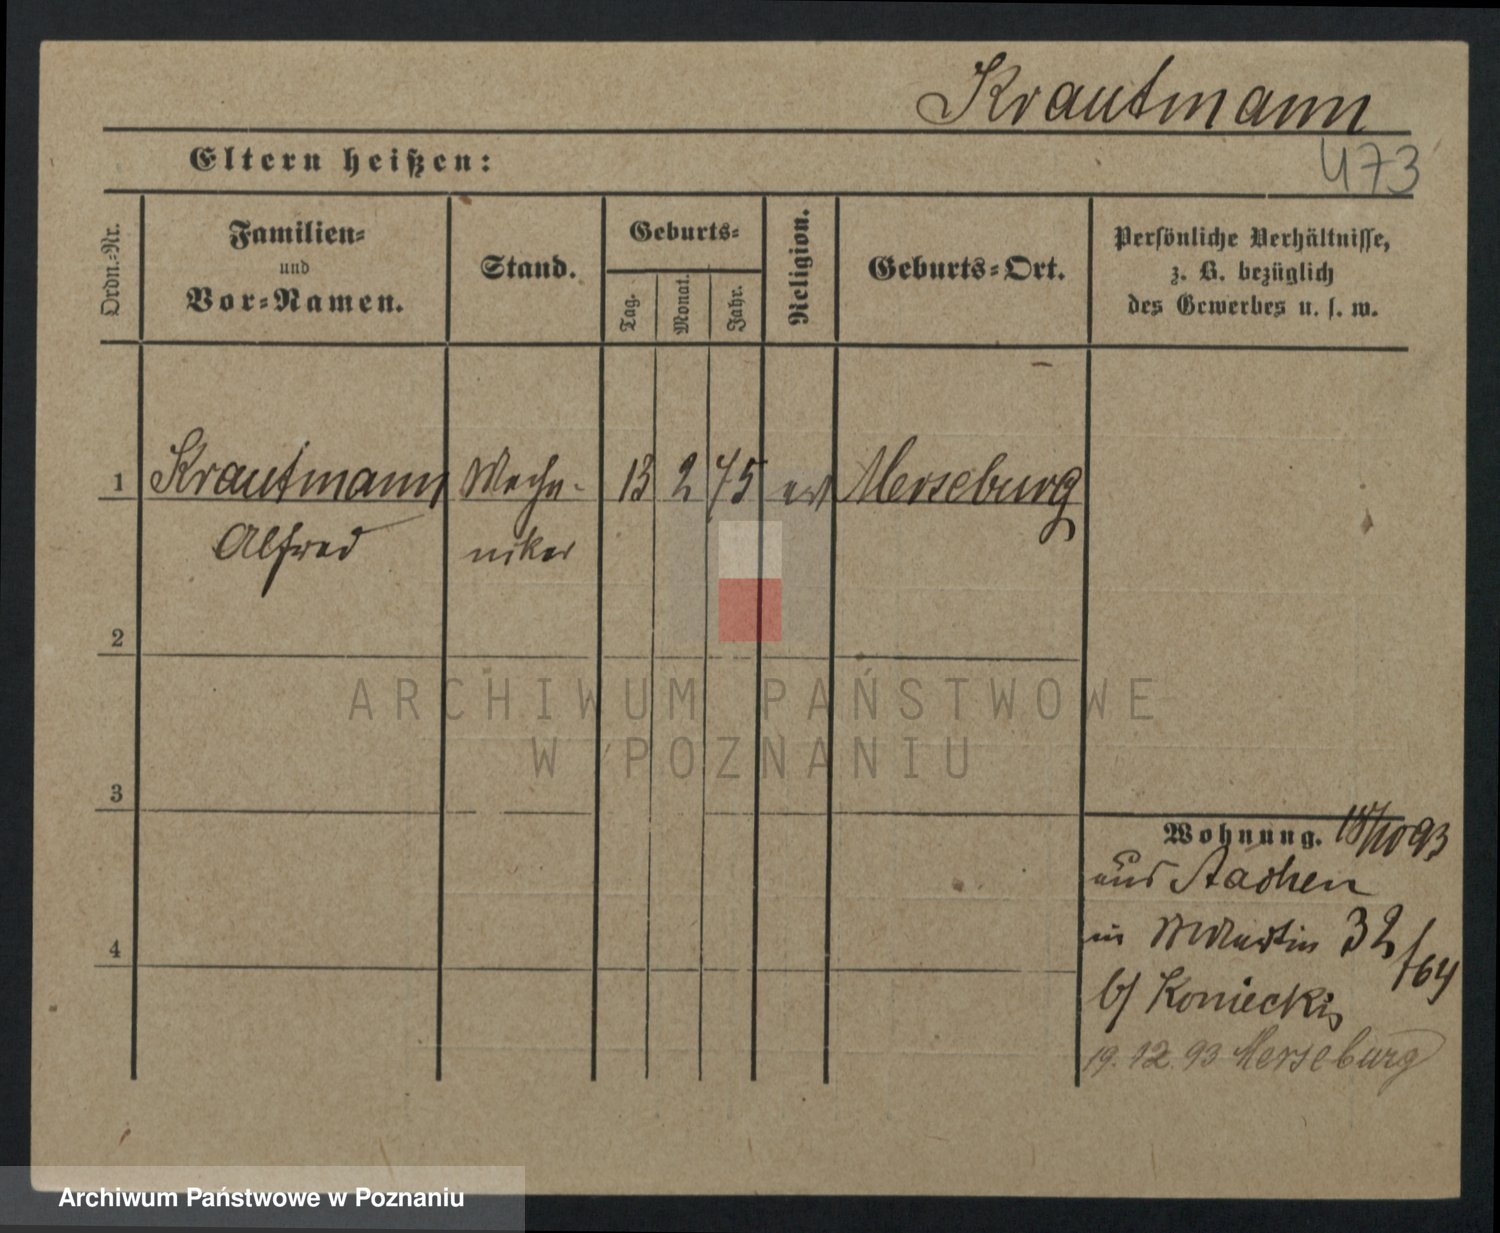 Krautmann
Eltern heißen:
473
Ordn.-Nr.
Familien-
und
Vor-Namen.
Stand.
Geburts-
Tag.
Monat.
Jahr.
Religion.
Geburts-Ort.
Persönliche Verhältnisse,
z. B. bezüglich
des Gewerbes u. s. w.
1 Krautmann Mecha- 13 2 75 ev Merseburg
Alfred niker
2
3
4
Wohnung. 15/10 93
aus Aachen
in Martin 32/64
b/ Koniecki
19. 12. 93 Merseburg
ARCHIWUM PAŃSTWOWE
W POZNANIU
Archiwum Państwowe w Poznaniu